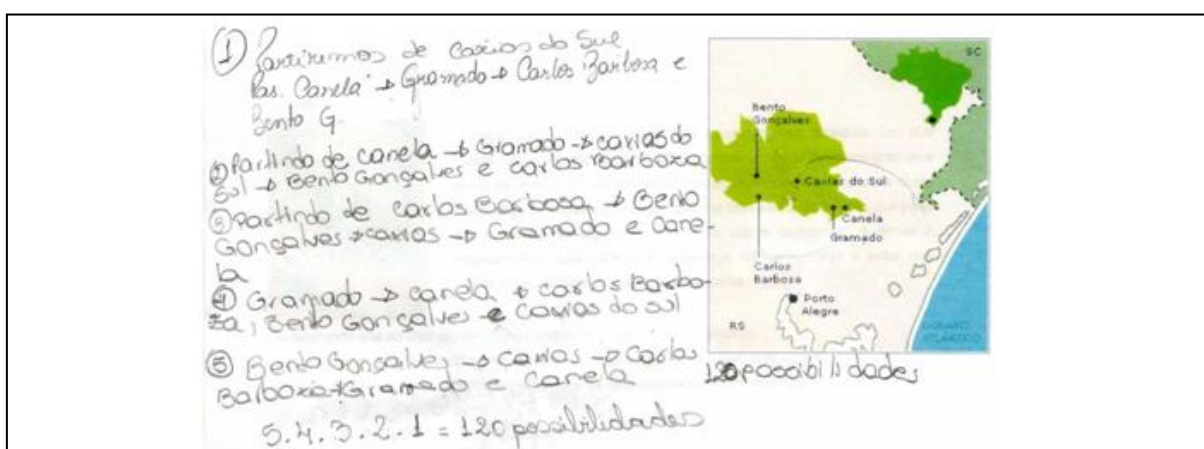 ① Partiremos de Caxias do Sul
Pas. Canela → Gramado → Carlos Barbosa e
Bento G.
② Partindo de canela → Gramado → caxias do
Sul → Bento Gonçalves e carlos Barboza
③ Partindo de carlos Barbosa → Bento
Gonçalves → caxias → Gramado e Cane-
la
④ Gramado → canela → carlos Barbo-
za, Bento Gonçalves e Caxias do sul
⑤ Bento Gonçalves → caxias → Carlos
Barboza → Gramado e Canela
5.4.3.2.1 = 120 possibilidades
SC
Bento
Gonçalves
Caxias do Sul
Canela
Gramado
Carlos
Barbosa
Porto
Alegre
RS
OCEANO
ATLÂNTICO
120 possibilidades